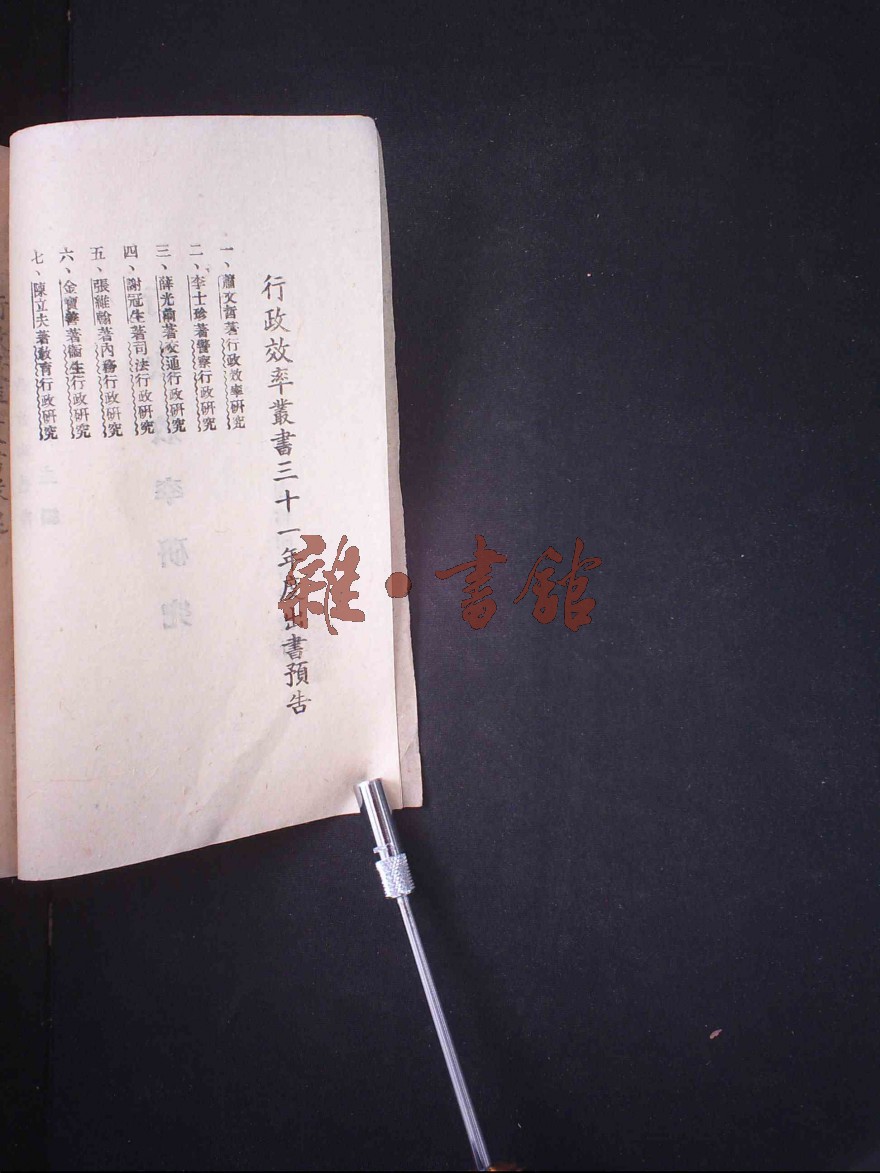 行政效率叢書三十一年度出書預告
一、蕭文哲著行政效率研究
二、李士珍著警察行政研究
三、薛光前著交通行政研究
四、謝冠生著司法行政研究
五、張維翰著內務行政研究
六、金寶善著衞生行政研究
七、陳立夫著教育行政研究
雜·書館